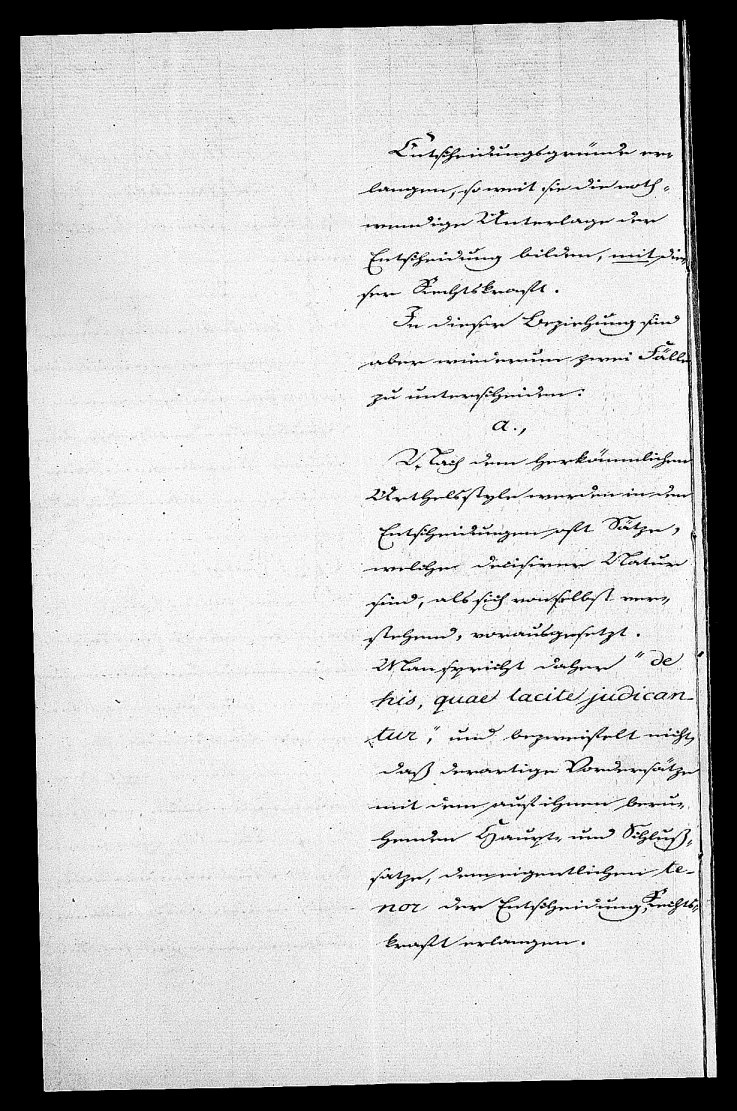 Entscheidungsgründe er-
langen, so weit sie die noth-
wendige Unterlage der
Entscheidung bilden, mit die-
ser Rechtskraft.
In dieser Beziehung sind
aber wiederum zwei Fälle
zu unterscheiden:
a.,
Nach dem herkömmlichen
Urthelsstyle werden in den
Entscheidungen oft Sätze,
welche decisiver Natur
sind, als sich von selbst ver-
stehend, vorausgesetzt.
Man spricht daher "de
his, quae tacite judican-
tur", und bezweifelt nicht,
daß derartige Vordersätze
mit dem auf ihnen beru-
henden Haupt- und Schluß-
satze, dem eigentlichen te-
nor der Entscheidung, Rechts-
kraft erlangen.